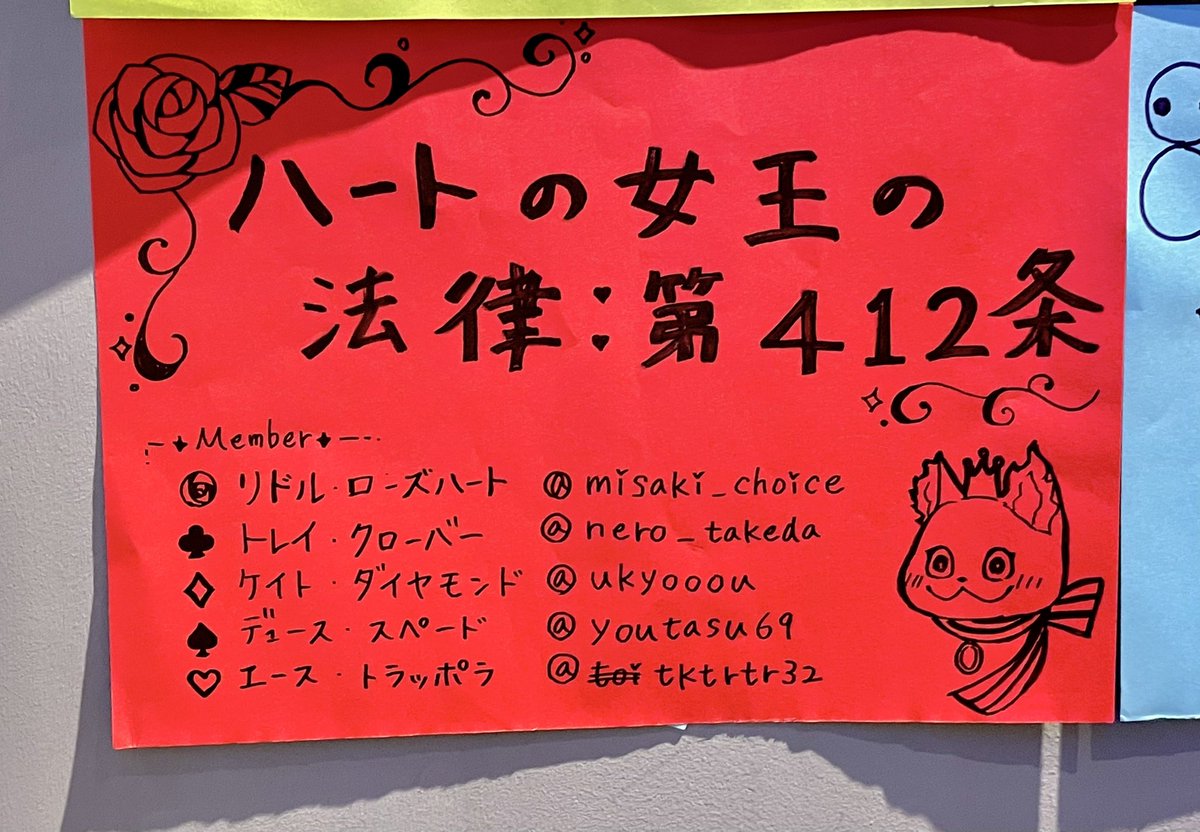 ハートの女王の
法律:第412条
Member
リドル・ローズハート @misaki_choice
トレイ・クローバー @nero_takeda
ケイト・ダイヤモンド @ukyooou
デュース・スペード @youtasu69
エース・トラッポラ @tktrtr32